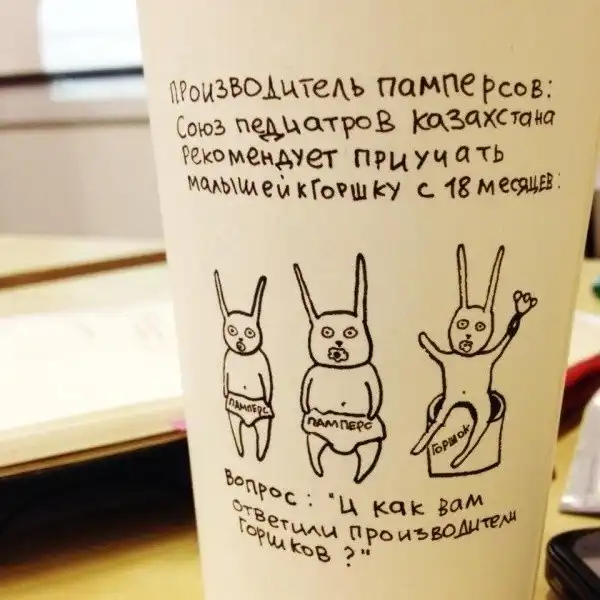 ПРОИЗВОДИТЕЛЬ ПАМПЕРСОВ:
Союз педиатров Казахстана
Рекомендует приучать
малышей к горшку с 18 месяцев:
ПАМПЕРС
ПАМПЕРС
ГОРШОК
Вопрос: "И как вам
ответили производители
Горшков?"